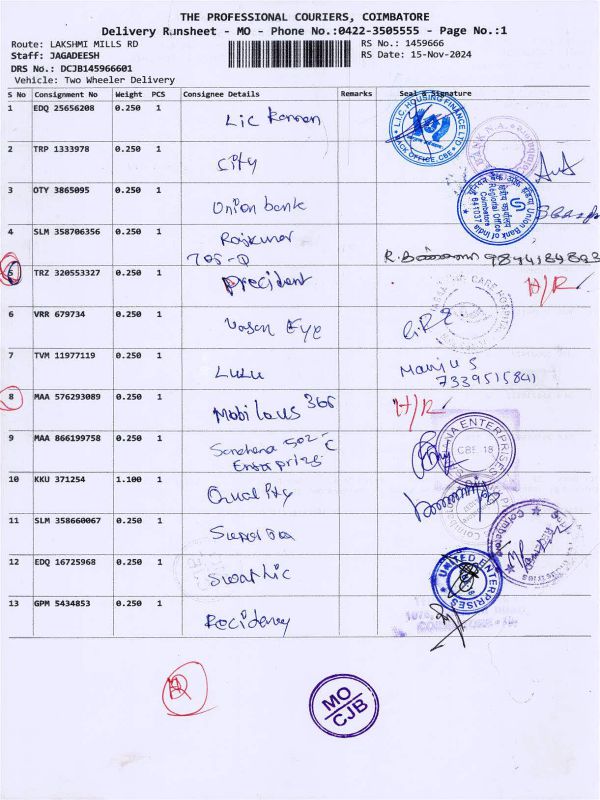 THE PROFESSIONAL COURIERS, COIMBATORE
Delivery Runsheet - MO - Phone No.:0422-3505555 - Page No.:1
Route: LAKSHMI MILLS RD
RS No.: 1459666
Staff: JAGADEESH
RS Date: 15-Nov-2024
DRS No.: DCJB145966601
Vehicle: Two Wheeler Delivery
S No Consignment No Weight PCS Consignee Details Remarks Seal & Signature
1 EDQ 25656208 0.250 1 Lic Kannan
L.I.C. HOUSING FINANCE LTD
BACK OFFICE, CBE
2 TRP 1333978 0.250 1 City
3 OTY 3865095 0.250 1 Union bank
Union Bank of India
Regional Office
Coimbatore
641037
4 SLM 358706356 0.250 1 Rajkumar
705-Q
9894184893
5 TRZ 320553327 0.250 1 precident H/R
6 VRR 679734 0.250 1 Vasan Eye
7 TVM 11977119 0.250 1 LuLu
Manju S
7339515841
8 MAA 576293089 0.250 1 Mobilous 366 H/R
9 MAA 866199758 0.250 1 502-C
Enterprise
ENTERPRISES
CBE-18
10 KKU 371254 1.100 1 Quality
11 SLM 358660067 0.250 1
Coimbatore
12 EDQ 16725968 0.250 1 Swathic
UNITED ENTERPRISES
13 GPM 5434853 0.250 1 Recidency
MO
CJB